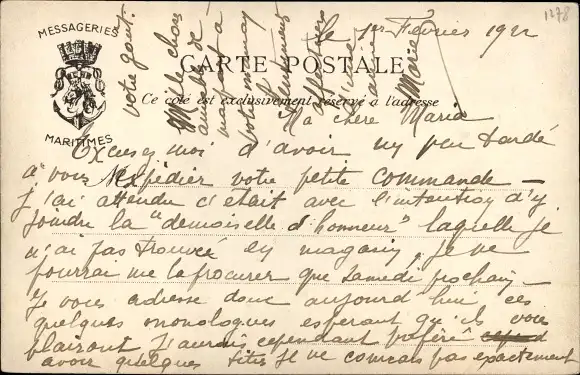 1278
MESSAGERIES
MARITIMES
CARTE POSTALE
Ce côté est exclusivement réservé à l'adresse
le 1er Février 1922
Ma chère Maria
Excusez moi d'avoir un peu tardé
à vous expédier votre petite commande –
j'ai attendu c'était avec l'intention d'y
joindre la "demoiselle d'honneur" laquelle je
n'ai pas trouvée en magasin, je ne
pourrai me la procurer que Samedi prochain –
Je vous adresse donc aujourd'hui ces
quelques monologues espérant qu'ils vous
plairont J'aurais cependant préféré
avoir quelques titres Je ne connais pas exactement
votre gout.
Marie